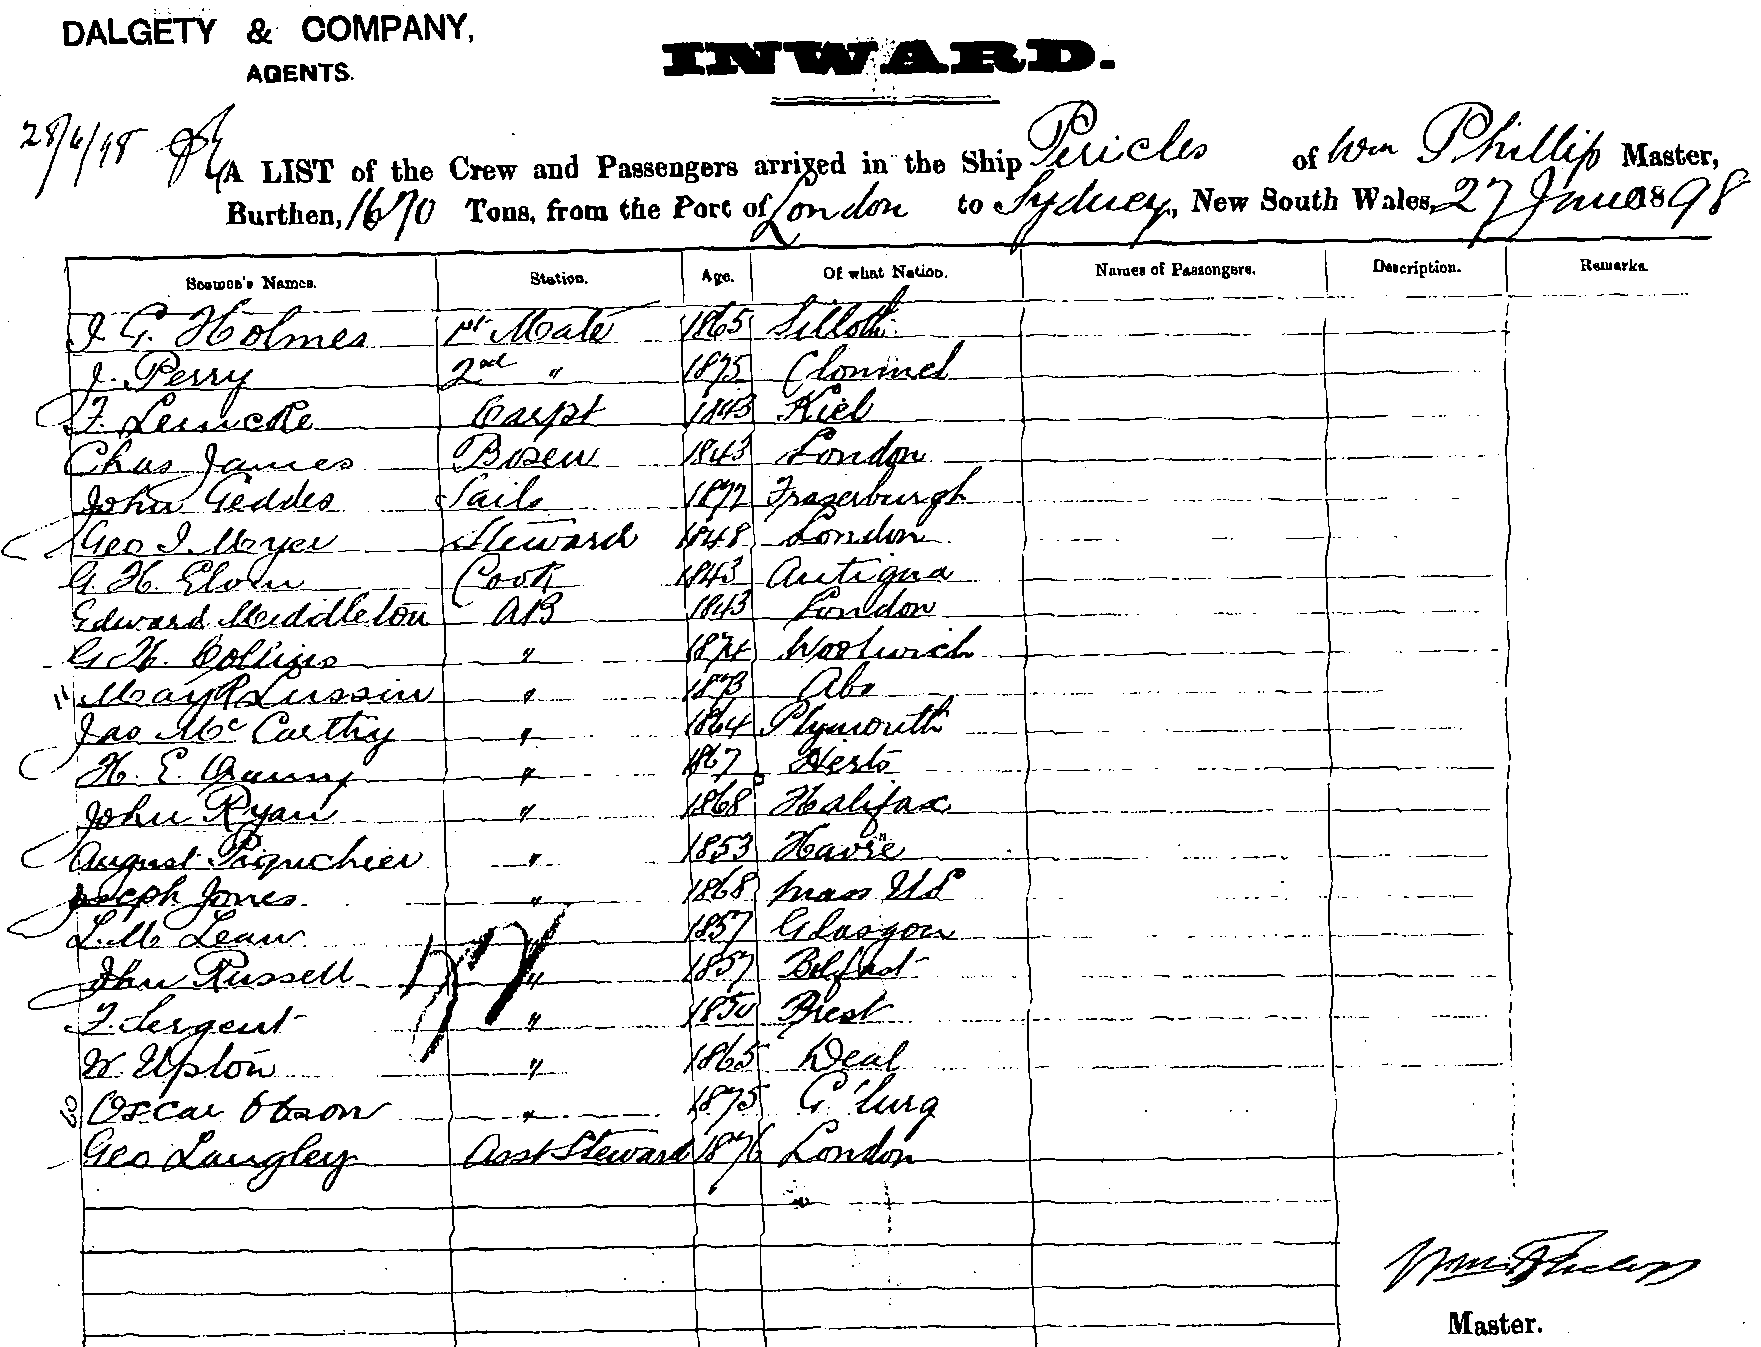 DALGETY & COMPANY,
AGENTS.
INWARD.
28/6/98
A LIST of the Crew and Passengers arrived in the Ship Pericles of Wm Phillip Master,
Burthen, 1670 Tons, from the Port of London to Sydney, New South Wales, 27 June 1898
Seamen's Names. Station. Age. Of what Nation. Names of Passengers. Description. Remarks.
J. G. Holmes 1st Mate 1865 Silloth
J. Perry 2nd " 1875 Clonmel
F. Leincke Carpt 1843 Kiel
Chas James Bosen 1843 London
John Geddes Sails 1872 Frazerburgh
Geo J. Myer Steward 1848 London
G. H. Elvin Cook 1843 Antigua
Edward Middleton AB 1843 London
G. H. Collins " 1874 Woolwich
" 1873 Abo
Jas McCarthy " 1864 Plymouth
H. E. " 1867 Herts
John Ryan " 1868 Halifax
August Piquchier " 1853 Havre
Joseph Jones " 1868 Mass US
L. Mc Lean " 1857 Glasgow
John Russell " 1857 Belfast
F. Sergent " 1850 Brest
W. Upton " 1865 Deal
Oscar Olson " 1875 G'burg
Geo Langley Asst Steward 1876 London
Wm Phillip
Master.